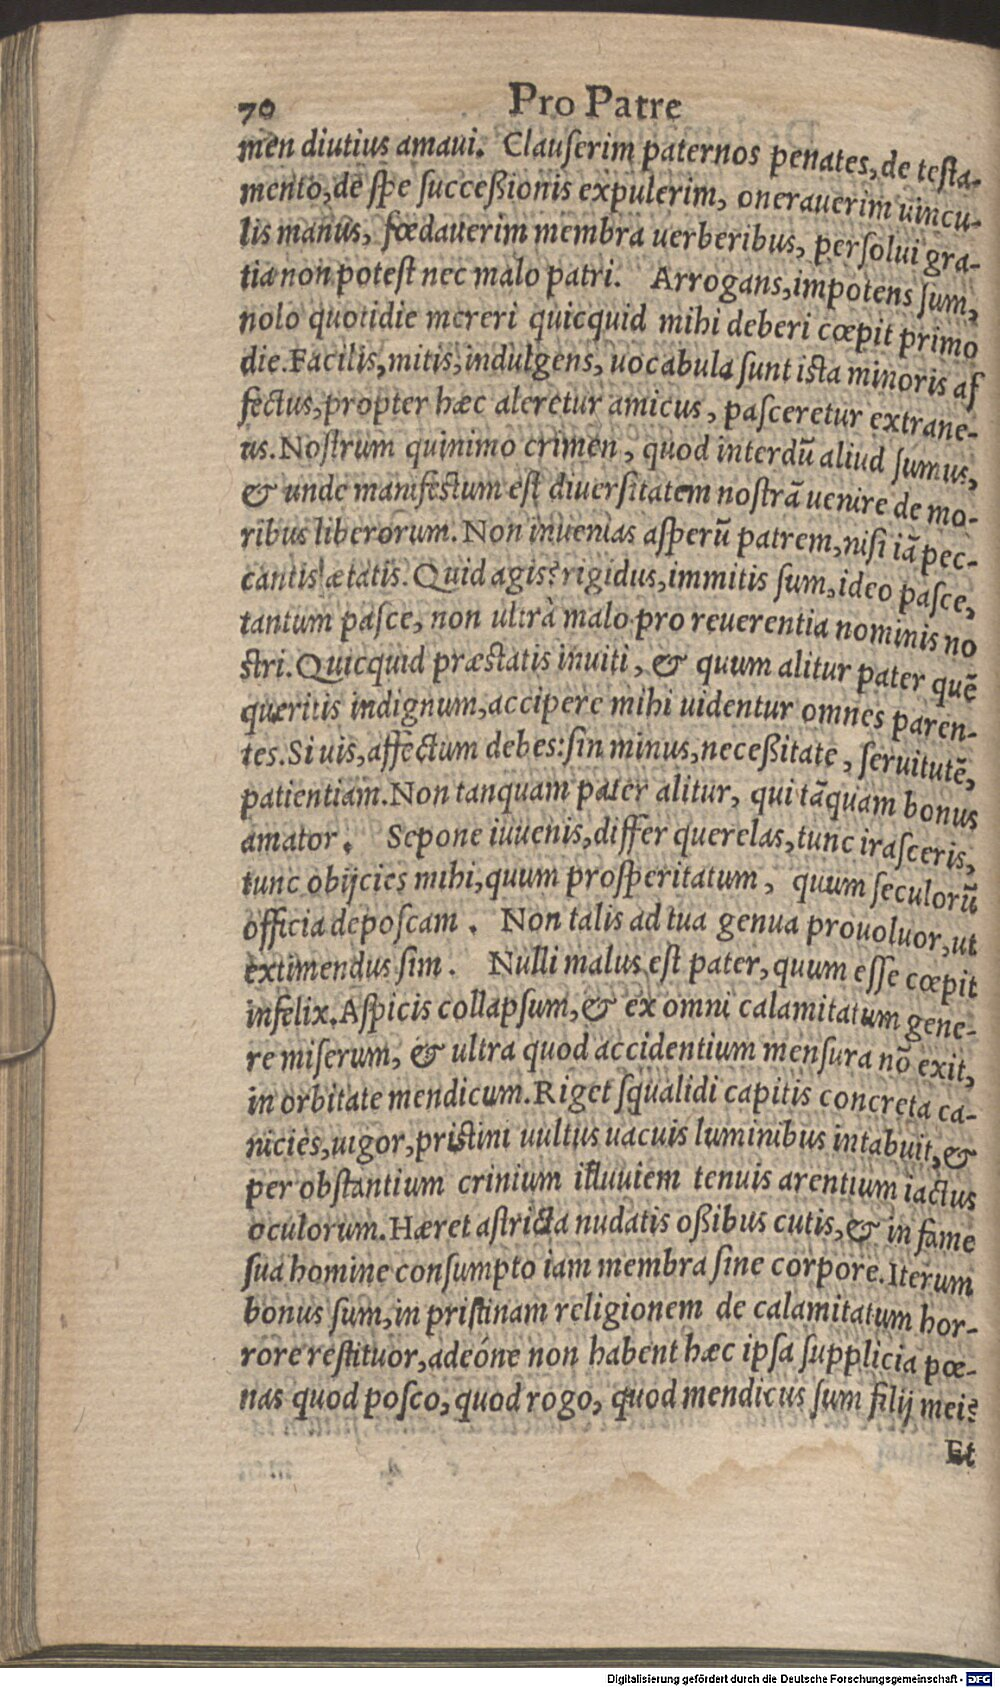 70 Pro Patre
men diutius amaui. Clauserim paternos penates, de testa-
mento, de spe successionis expulerim, onerauerim uincu-
lis manus, fœdauerim membra uerberibus, persolui gra-
tia non potest nec malo patri. Arrogans, impotens sum,
nolo quotidie mereri quicquid mihi deberi cœpit primo
die. Facilis, mitis, indulgens, uocabula sunt ista minoris af
fectus, propter hæc aleretur amicus, pasceretur extrane-
us. Nostrum quinimo crimen, quod interdū aliud sumus,
& unde manifestum est diuersitatem nostrā uenire de mo-
ribus liberorum. Non inuenias asperū patrem, nisi iā pec-
cantis ætatis. Quid agis? rigidus, immitis sum, ideo pasce,
tantum pasce, non ultrà malo pro reuerentia nominis no
stri. Quicquid præstatis inuiti, & quum alitur pater quē
queritis indignum, accipere mihi uidentur omnes paren-
tes. Si uis, affectum debes: sin minus, necessitate, seruitutē,
patientiam. Non tanquam pater alitur, qui tāquam bonus
amator. Sepone iuuenis, differ querelas, tunc irasceris,
tunc obijcies mihi, quum prosperitatum, quum seculorū
officia deposcam. Non talis ad tua genua prouoluor, ut
extimendus sim. Nulli malus est pater, quum esse cœpit
infelix. Aspicis collapsum, & ex omni calamitatum gene-
re miserum, & ultra quod accidentium mensura nō exit,
in orbitate mendicum. Riget squalidi capitis concreta ca-
nicies, uigor, pristini uultus uacuis luminibus intabuit, &
per obstantium crinium illuuiem tenuis arentium iactus
oculorum. Hæret astricta nudatis ossibus cutis, & in fame
sua homine consumpto iam membra sine corpore. Iterum
bonus sum, in pristinam religionem de calamitatum hor-
rore restituor, adeóne non habent hæc ipsa supplicia pœ-
nas quod posco, quod rogo, quod mendicus sum filij mei?
Et
Digitalisierung gefördert durch die Deutsche Forschungsgemeinschaft - DFG